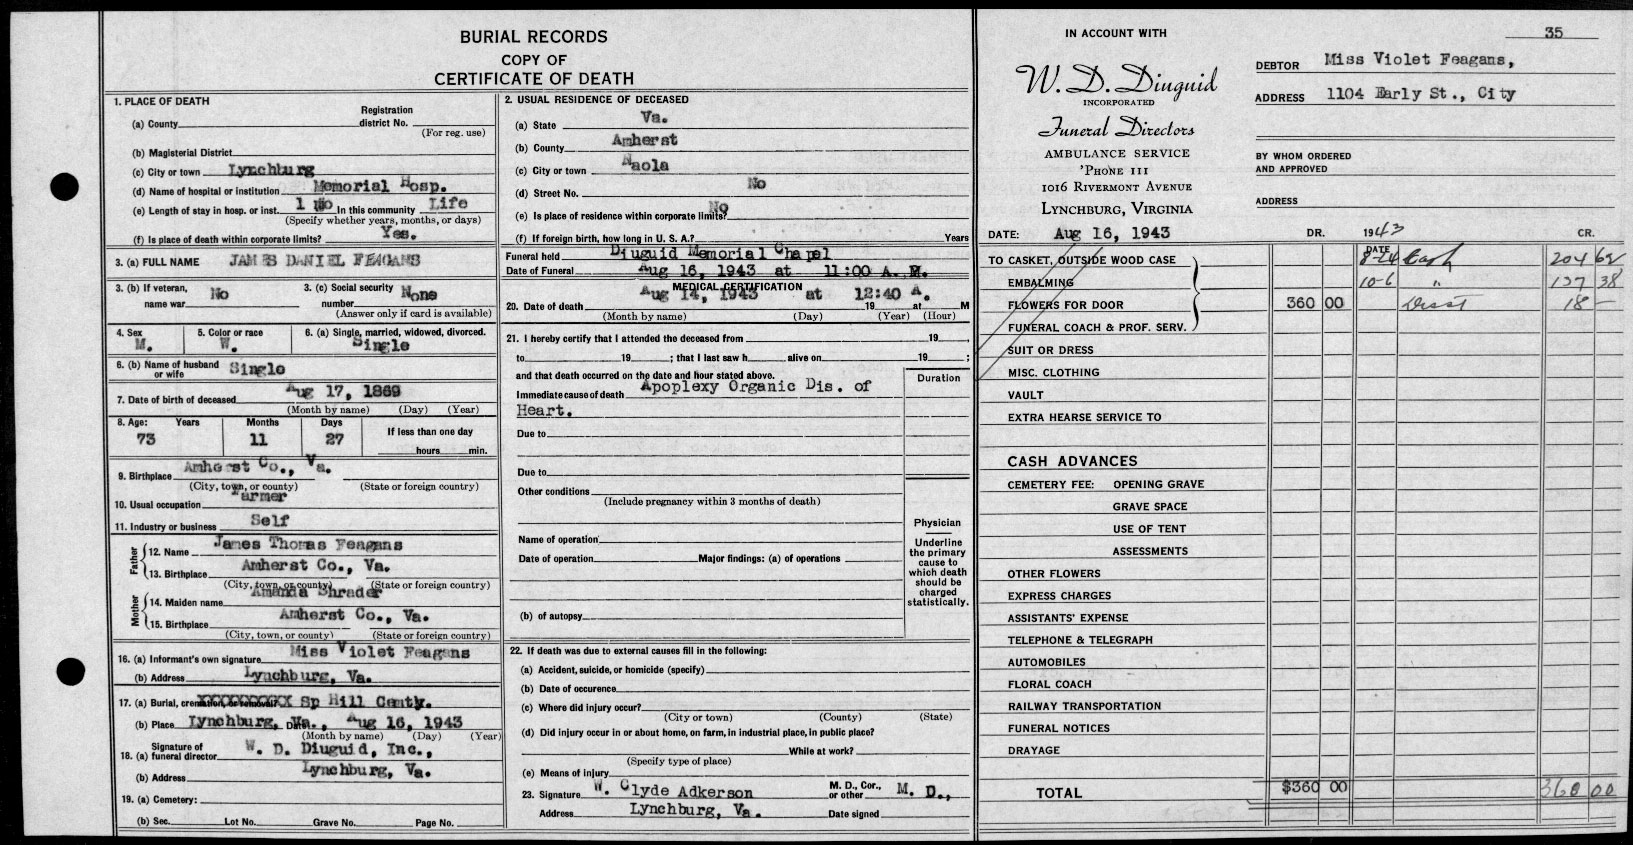 BURIAL RECORDS
COPY OF
CERTIFICATE OF DEATH
1. PLACE OF DEATH
(a) County
Registration district No.
(For reg. use)
(b) Magisterial District
(c) City or town Lynchburg
(d) Name of hospital or institution Memorial Hosp.
(e) Length of stay in hosp. or inst. 1 mo In this community Life
(Specify whether years, months, or days)
(f) Is place of death within corporate limits? Yes.
3. (a) FULL NAME JAMES DANIEL FEAGANS
3. (b) If veteran, name war No
3. (c) Social security number None
(Answer only if card is available)
4. Sex M.
5. Color or race W.
6. (a) Single, married, widowed, divorced. Single
6. (b) Name of husband or wife Single
7. Date of birth of deceased Aug 17, 1869
(Month by name) (Day) (Year)
8. Age: Years Months Days If less than one day
73 11 27 hours min.
9. Birthplace Amherst Co., Va.
(City, town, or county) (State or foreign country)
10. Usual occupation Farmer
11. Industry or business Self
Father
12. Name James Thomas Feagans
13. Birthplace Amherst Co., Va.
(City, town, or county) (State or foreign country)
Mother
14. Maiden name Amanda Shrader
15. Birthplace Amherst Co., Va.
(City, town, or county) (State or foreign country)
16. (a) Informant's own signature Miss Violet Feagans
(b) Address Lynchburg, Va.
17. (a) Burial, cremation, or removal? XXXXXXXXXX Sp Hill Cemty.
(b) Place Lynchburg, Va., Date Aug 16, 1943
(Month by name) (Day) (Year)
18. (a) Signature of funeral director W. D. Diuguid, Inc.,
(b) Address Lynchburg, Va.
19. (a) Cemetery:
(b) Sec. Lot No. Grave No. Page No.
2. USUAL RESIDENCE OF DECEASED
(a) State Va.
(b) County Amherst
(c) City or town Naola
(d) Street No. No
(e) Is place of residence within corporate limits? No
(f) If foreign birth, how long in U. S. A.? Years
Funeral held Diuguid Memorial Chapel
Date of Funeral Aug 16, 1943 at 11:00 A. M.
MEDICAL CERTIFICATION
20. Date of death Aug 14, 1943 at 12:40 A. 19 at M
(Month by name) (Day) (Year) (Hour)
21. I hereby certify that I attended the deceased from 19 ,
to 19 ; that I last saw h alive on 19 ;
and that death occurred on the date and hour stated above.
Duration
Immediate cause of death Apoplexy Organic Dis. of
Heart.
Due to
Due to
Other conditions
(Include pregnancy within 3 months of death)
Name of operation
Date of operation Major findings: (a) of operations
(b) of autopsy
Physician
Underline
the primary
cause to
which death
should be
charged
statistically.
22. If death was due to external causes fill in the following:
(a) Accident, suicide, or homicide (specify)
(b) Date of occurence
(c) Where did injury occur?
(City or town) (County) (State)
(d) Did injury occur in or about home, on farm, in industrial place, in public place?
While at work?
(Specify type of place)
(e) Means of injury
23. Signature W. Clyde Adkerson M. D., Cor., or other M. D.,
Address Lynchburg, Va. Date signed
IN ACCOUNT WITH
W. D. Diuguid
INCORPORATED
Funeral Directors
AMBULANCE SERVICE
'PHONE 111
1016 RIVERMONT AVENUE
LYNCHBURG, VIRGINIA
DATE: Aug 16, 1943
35
DEBTOR Miss Violet Feagans,
ADDRESS 1104 Early St., City
BY WHOM ORDERED
AND APPROVED
ADDRESS
DR. 1943 CR.
DATE
TO CASKET, OUTSIDE WOOD CASE 8-24 Cash 204 62
EMBALMING 10-6 " 137 38
FLOWERS FOR DOOR 360 00 Disct 18 —
FUNERAL COACH & PROF. SERV.
SUIT OR DRESS
MISC. CLOTHING
VAULT
EXTRA HEARSE SERVICE TO
CASH ADVANCES
CEMETERY FEE: OPENING GRAVE
GRAVE SPACE
USE OF TENT
ASSESSMENTS
OTHER FLOWERS
EXPRESS CHARGES
ASSISTANTS' EXPENSE
TELEPHONE & TELEGRAPH
AUTOMOBILES
FLORAL COACH
RAILWAY TRANSPORTATION
FUNERAL NOTICES
DRAYAGE
TOTAL $360 00 360 00